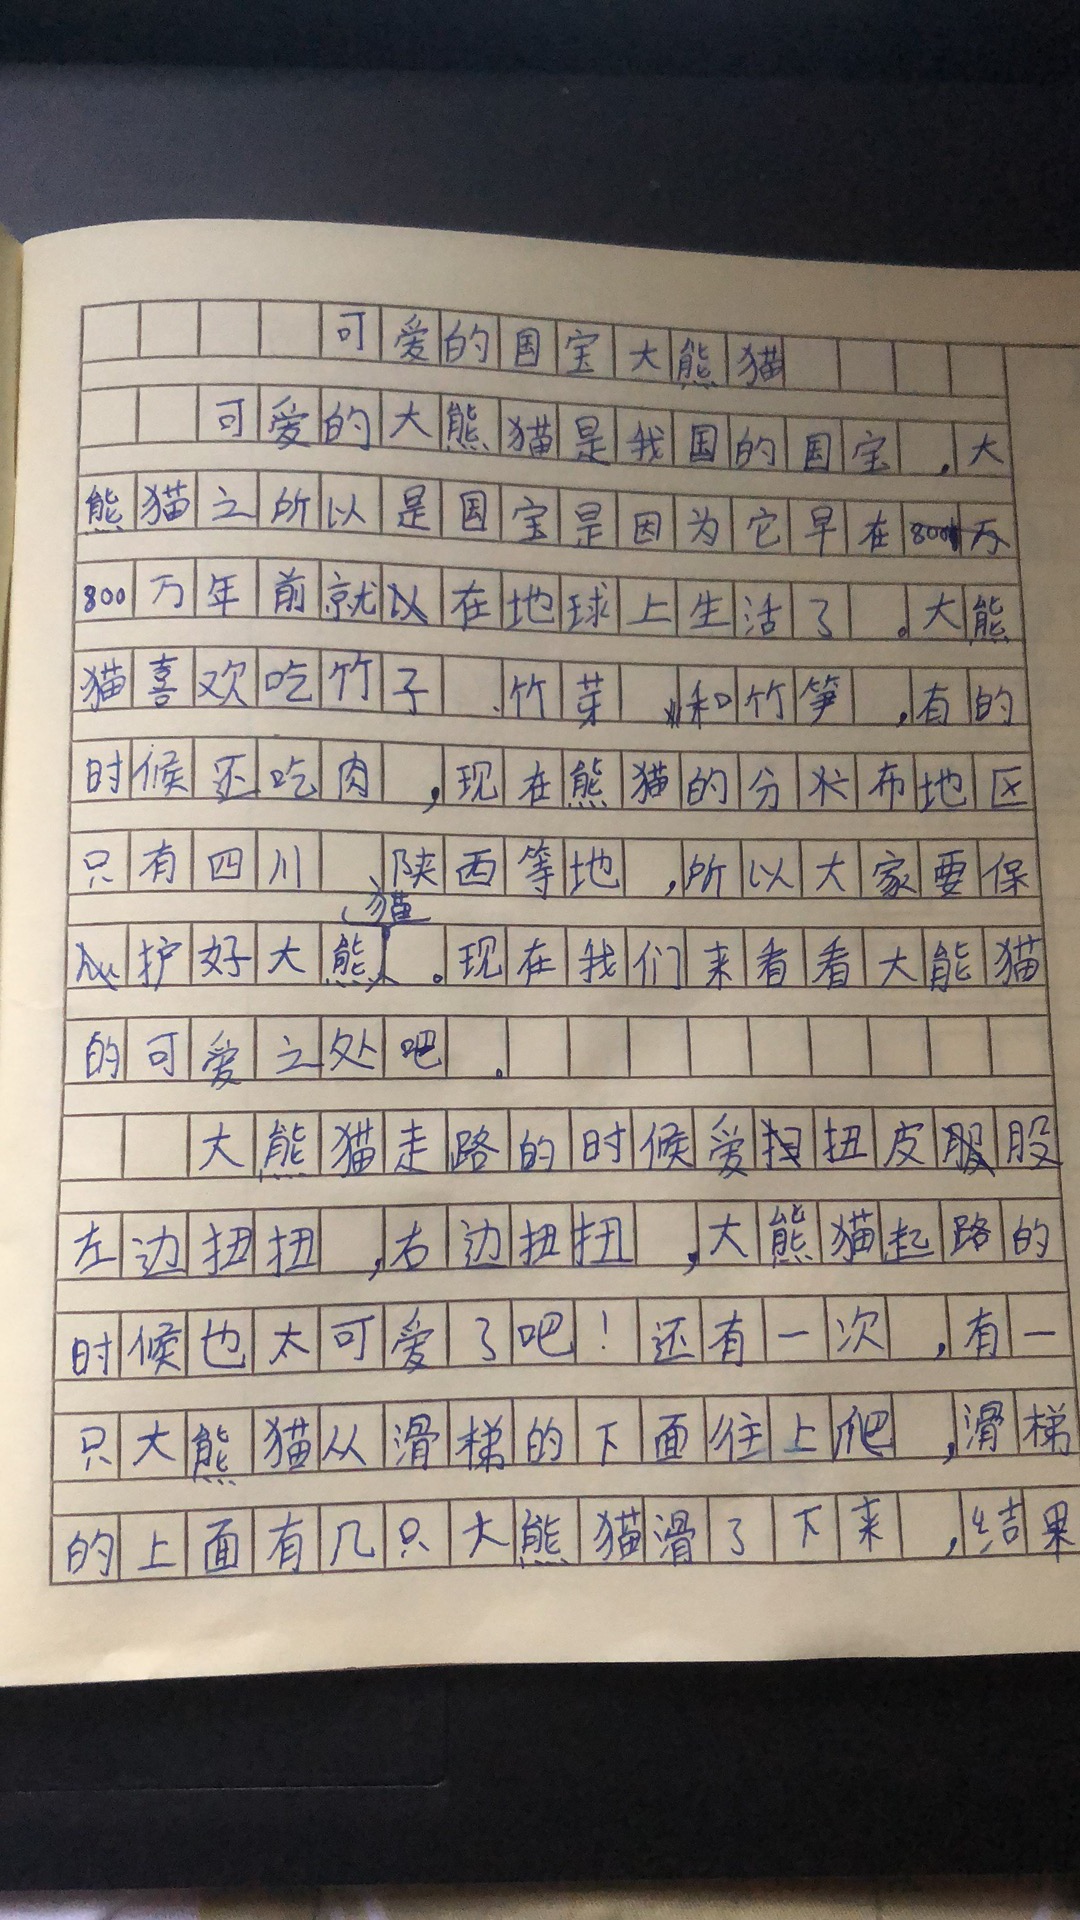 可爱的国宝大熊猫
可爱的大熊猫是我国的国宝，大
熊猫之所以是国宝是因为它早在
800万年前就以在地球上生活了。大熊
猫喜欢吃竹子、竹芽和竹笋，有的
时候还吃肉，现在熊猫的分布地区
只有四川、陕西等地，所以大家要保
护好大熊猫。现在我们来看看大能猫
的可爱之处吧。
大熊猫走路的时候爱扭皮股
左边扭扭，右边扭扭，大熊猫起路的
时候也太可爱了吧！还有一次，有一
只大熊猫从滑梯的下面往上爬，滑梯
的上面有几只大熊猫滑了下来，结果